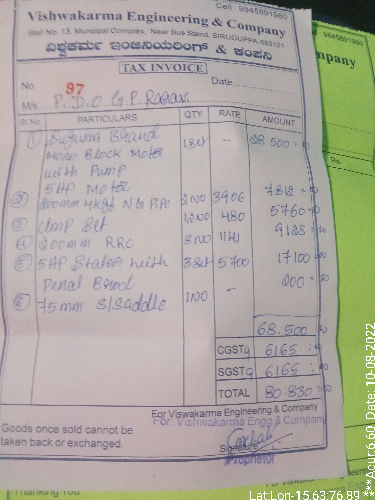 Cell : 9845891980
Vishwakarma Engineering & Company
Stall No. 13, Muncipal Complex, Near Bus Stand, SIRUGUPPA-583121
ವಿಶ್ವಕರ್ಮ ಇಂಜಿನಿಯರಿಂಗ್ & ಕಂಪನಿ
TAX INVOICE
No. 97 Date
M/s. P.D.O G.P.
Sl.No. PARTICULARS QTY RATE AMOUNT
1 Brand 1 Set - 28500=00
Mono Block Motor
with Pump
5HP Motor
2 200mm PiPe 2 NO 3906 7812=00
3 Set 12 NO 480 5760=00
4 200mm RRC 8 NO 1141 9128=00
5 5HP Stater with 3 Set 5700 17100=00
Penal Board
6 75mm S/Saddle 1 NO - 200=00
68.500=00
CGST 9 6165
SGST 9 6165
TOTAL 80.830=00
For Viswakarma Engineering & Company
For: Vishwakarma Engg & Company
Goods once sold cannot be
taken back or exchanged.
Signature
Proprietor
9845891980
mpany
Rs.
Thanking You
Lat:Lon-15.63:76.89 ***Acur:6.60, Date: 10-08-2022